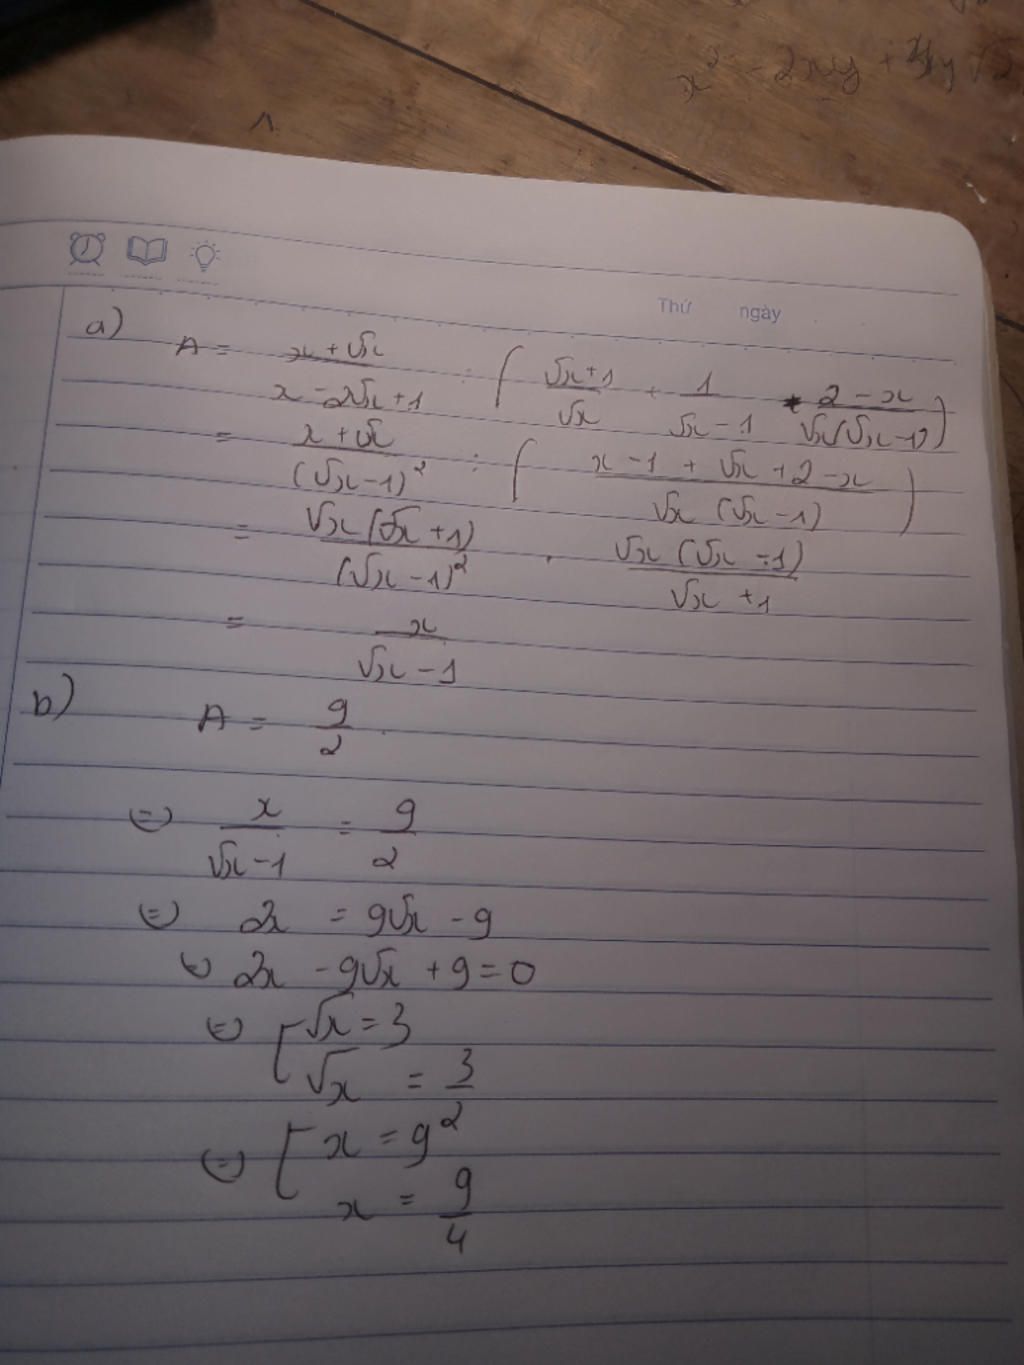 x² - 2xy + y√2
Thứ ngày
a) A = (x + √x)/(x - 2√x + 1) : ( (√x + 1)/√x + 1/(√x - 1) + (2 - x)/(√x(√x - 1)) )
= (x + √x)/(√x - 1)² : ( (x - 1 + √x + 2 - x)/(√x (√x - 1)) )
= √x(√x + 1)/(√x - 1)² . √x (√x - 1)/(√x + 1)
= x/(√x - 1)
b) A = 9/2
(=) x/(√x - 1) = 9/2
(=) 2x = 9√x - 9
(=) 2x - 9√x + 9 = 0
(=) [ √x = 3
√x = 3/2
(=) [ x = 9
x = 9/4